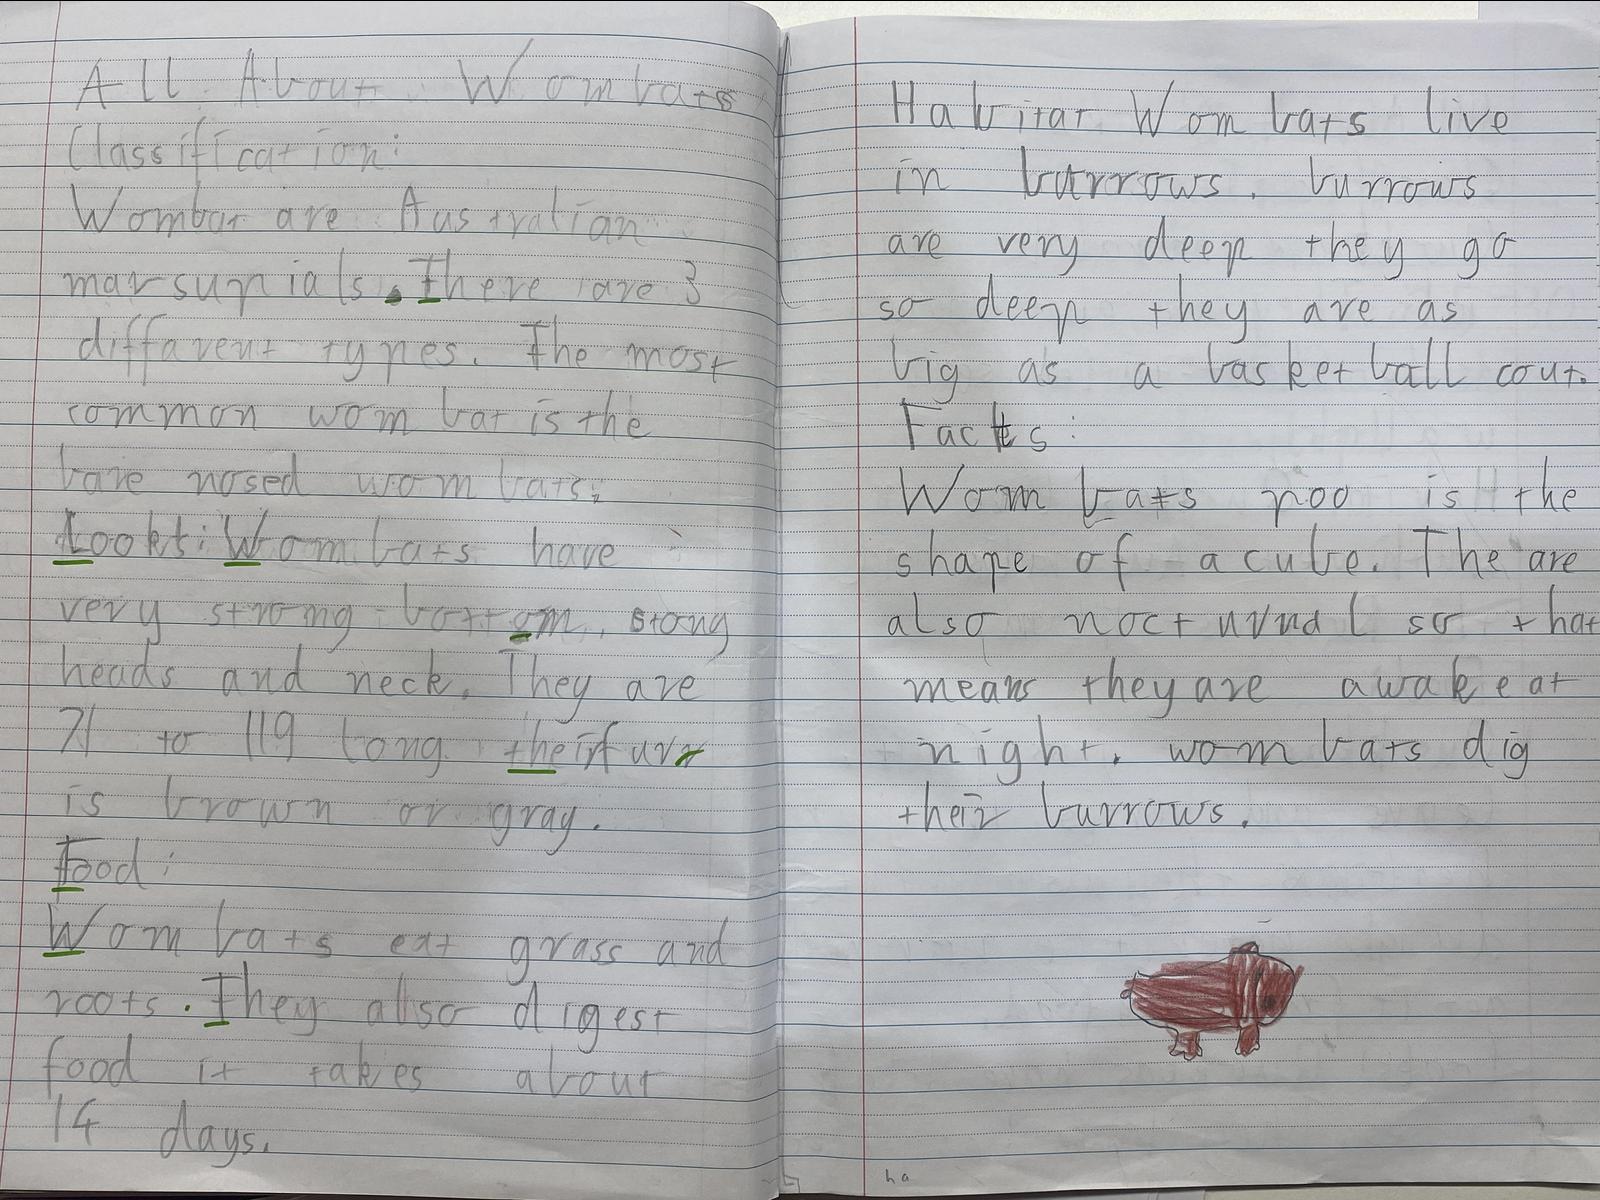 All About Wombats
Classification:
Wombat are Australian
marsupials. There are 3
diffarent types. The most
common wombat is the
bare nosed wombats.
Look: Wombats have
very strong bottom, stong
heads and neck. They are
71 to 119 long. their fur
is brown or gray.
Food:
Wombats eat grass and
roots. They also digest
food it takes about
14 days.
Habitat Wombats live
in burrows. burrows
are very deep they go
so deep they are as
big as a basket ball cout.
Facts:
Wombats poo is the
shape of a cube. The are
also nocturnal so that
means they are awake at
night. wombats dig
their burrows.
ha